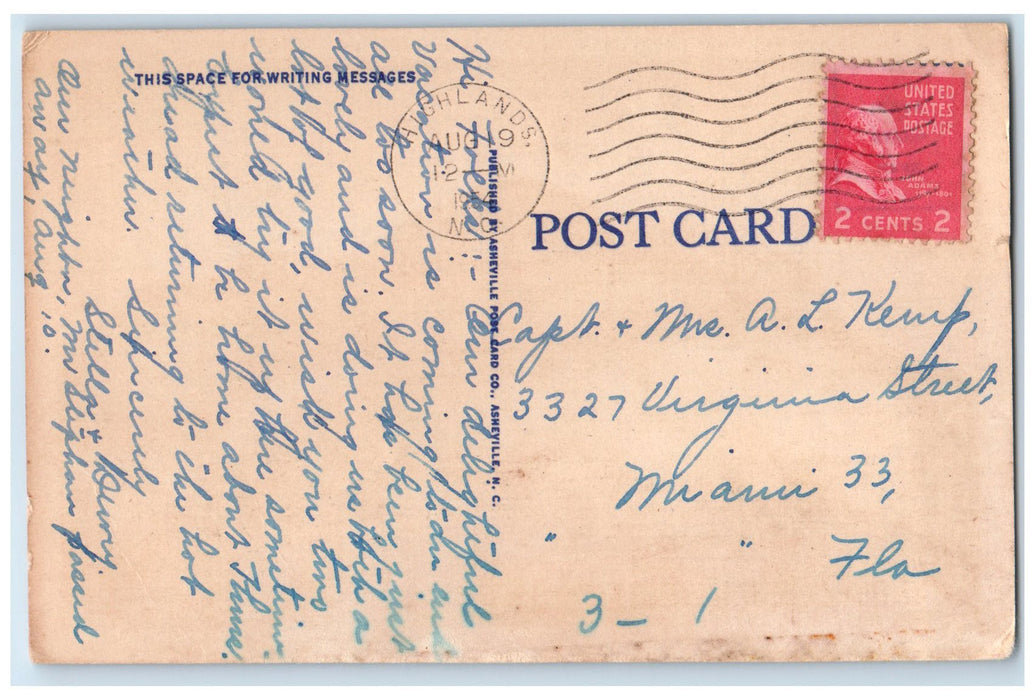 THIS SPACE FOR WRITING MESSAGES
Hi, Folks:- Our delightful
Vacation is coming to an end
all too soon. It has been just
lovely and is doing us both a
lot of good, wish you two
would try it up here sometime.
Expect to be home about Thurs.
dread returning to the hot
weather. Sincerely
Stella & Dewey
Our neighbor, Mr. Stephens passed
away, Aug. 10.
PUBLISHED BY ASHEVILLE POST CARD CO., ASHEVILLE, N. C.
HIGHLANDS,
AUG 19
12 M
1954
N.C.
UNITED
STATES
POSTAGE
JOHN
ADAMS
2 CENTS 2
POST CARD
Capt. + Mrs. A. L. Kemp,
3327 Virginia Street,
Miami 33,
" " Fla
3 - 1